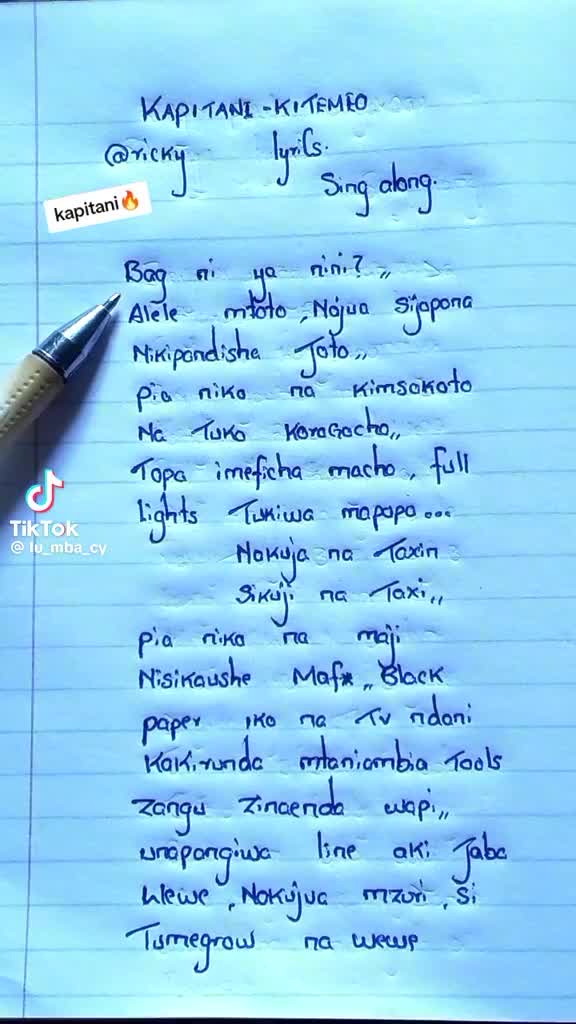 KAPITANI - KITEMEO
@ricky lyrics.
Sing along.
kapitani🔥
Bag ni ya nini? ,,
Alele mtoto, Najua Sijapona
Nikipandisha Joto,,
pia niko na kimsokoto
Na Tuko Koragocho,,
Topa imeficha macho, full
lights Tukiwa mapopo...
Nakuja na Taxin
Sikuji na Taxi,,
pia niko na maji
Nisikaushe Maf*,, Black
paper iko na Tv ndani
Kakirunda mtaniambia Tools
Zangu Zinaenda wapi,,
unapangiwa line aki Jaba
Wewe, Nakujua mzuri, Si
Tumegrow na wewe
TikTok
@ lu_mba_cy